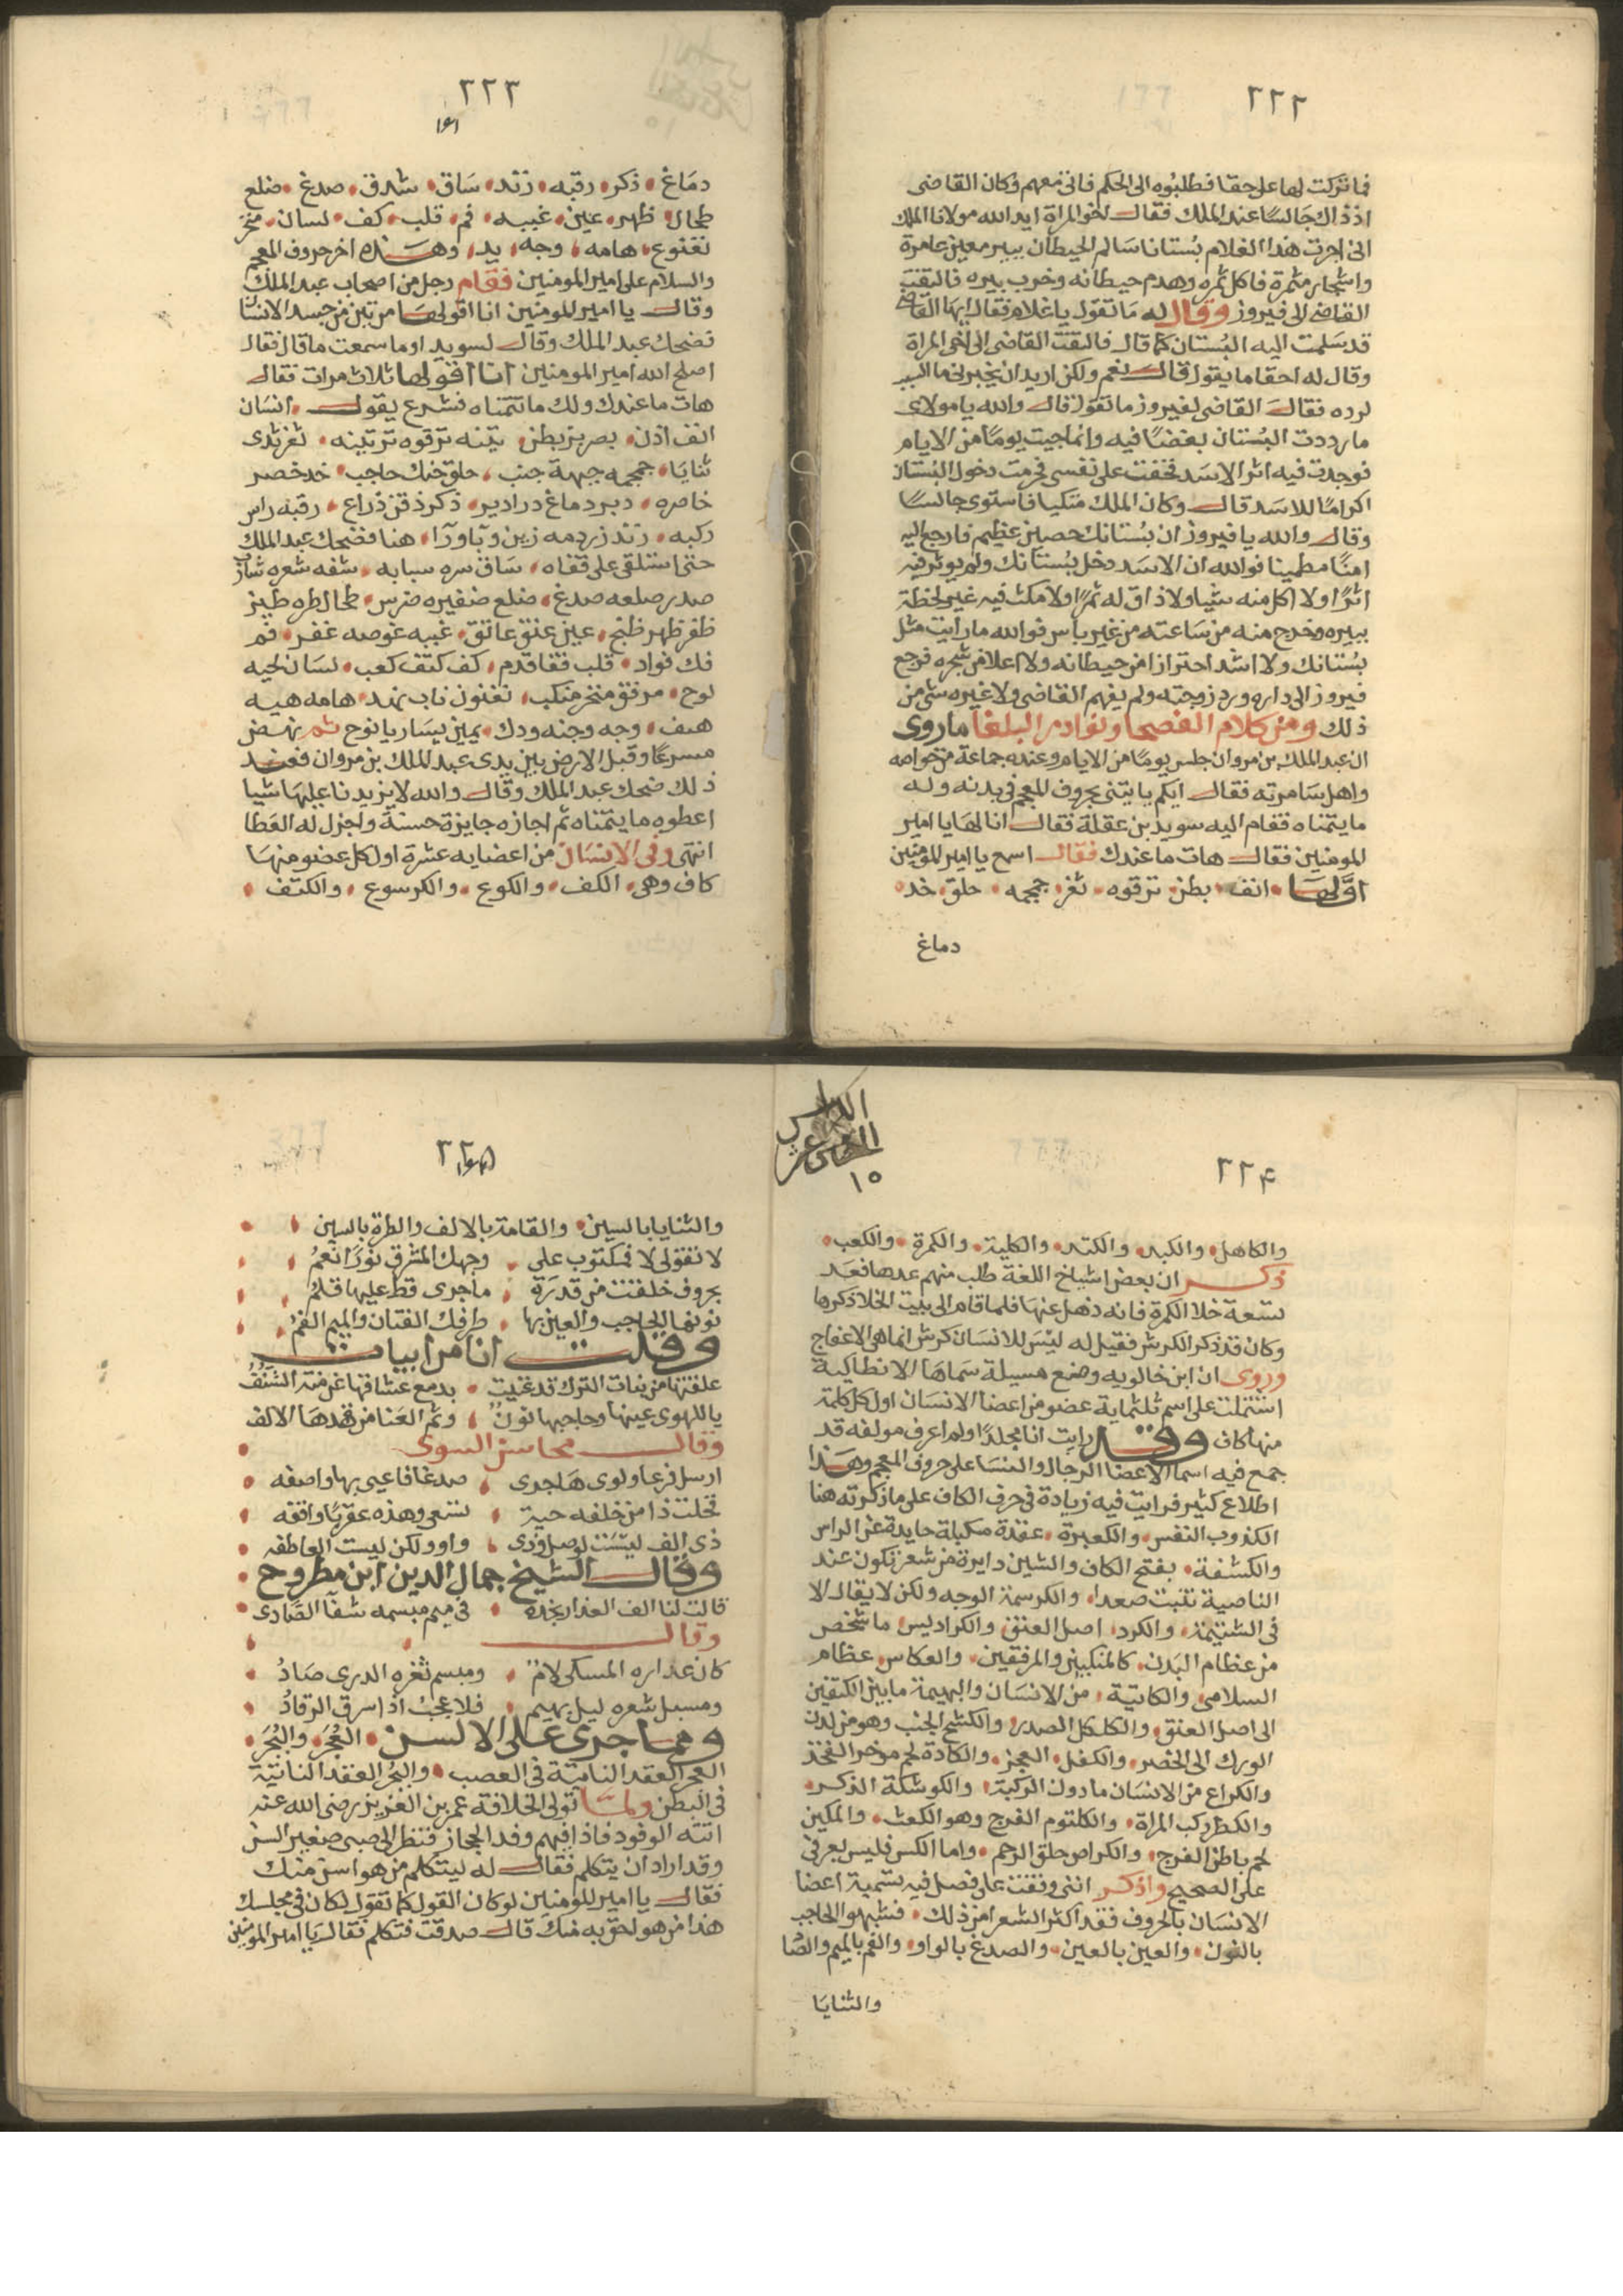 ٢٢٢
فما تركت لها على حقا فطلبوه الى الحكم فاتى معهم وكان القاضى
اذ ذاك جالسا عند الملك فقال اخو المراة ايد الله مولانا الملك
انى اجرت هذا الغلام بستانا سالم الحيطان ببير معين عامرة
واشجار مثمرة فاكل ثمره وهدم حيطانه وخرب بيره فالتفت
القاضى الى فيروز وقال له ما تقول يا غلام فقال ايها القاضى
قد سلمت اليه البستان كما قال فالتفت القاضى الى اخى المراة
وقال له احقا ما يقول قال نعم ولكن اريد ان يخبرنى ما السبب
لرده فقال القاضى لفيروز ما تقول قال والله يا مولاى
ما رددت البستان بغضا فيه وانما جيت يوما من الايام
فوجدت فيه اثر الاسد فخفت على نفسى فحرمت دخول البستان
اكراما للاسد قال وكان الملك متكيا فاستوى جالسا
وقال والله يا فيروز ان بستانك حصين عظيم فارجع اليه
امنا مطمينا فوالله ان الاسد دخل بستانك ولم يوثر فيه
اثرا ولا اكل منه شيا ولا ذاق له ثمرا ولا مكث فيه غير لحظة
يسيره وخرج منه من ساعته من غير باس فوالله ما رايت مثل
بستانك ولا اشد احترازا من حيطانه ولا اعلا من شجره فرجع
فيروز الى داره ورد زوجته ولم يفهم القاضى ولا غيره شى من
ذلك ومن كلام الفصحا ونوادر البلغا ما روى
ان عبد الملك بن مروان جلس يوما من الايام وعنده جماعة من خواصه
واهل سامرته فقال ايكم ياتينى بحروف المعجم فى بدنه وله
ما يتمناه فقام اليه سويد بن عقلة فقال انا لها يا امير
المومنين فقال هات ما عندك فقال اسمع يا امير المومنين
اولها انف بطن ترقوه ثغر جمجمه حلق خد
دماغ
٢٢٣
دماغ ذكر رقبه زند ساق شدق صدغ ضلع
طحال ظهر عين غببه فم قلب كف لسان منخر
نغنوغ هامه وجه يد وهذه اخر حروف المعجم
والسلام على امير المومنين فقام رجل من اصحاب عبد الملك
وقال يا امير المومنين انا اقولها مرتين من جسد الانسان
فضحك عبد الملك وقال لسويد اوما سمعت ما قال فقال
اصلح الله امير المومنين انا اقولها ثلاث مرات فقال
هات ما عندك ولك ما تتمناه فشرع يقول انسان
انف اذن بصر بز بطن تينه ترقوه ترتينه ثغر ثدى
ثنايا جمجمه جبهة جنب حلق حنك حاجب خد خصر
خاصره دبر دماغ درادير ذكر ذقن ذراع رقبه راس
ركبه زند زردمه هنا فضحك عبد الملك
حتى استلقى على قفاه ساق سره سبابه شفه شعره شارب
صدر صلعه صدغ ضلع ضفيره ضرس طحال طره طيز
ظفر ظهر عين عنق عاتق غببه غفر فم
فك فواد قلب قفا قدم كف كتف كعب لسان لحيه
لوح مرفق منخر منكب نغنوغ ناب نهد هامه هيه
هيف وجه وجنه ودك يمين يسار يانوح ثم نهض
مسرعا وقبل الارض بين يدى عبد الملك بن مروان فعند
ذلك ضحك عبد الملك وقال والله لا يزيدنا عليها شيا
اعطوه ما يتمناه ثم اجازه جايزة حسنة واجزل له العطا
انتهى وفى الانسان من اعضايه عشرة اول كل عضو منها
كاف وهى الكف والكوع والكرسوع والكتف
٢٢٤
والكاهل والكبد والكتد والكلية والكمرة والكعب
ذكر ان بعض اشياخ اللغة طلب منهم عدها فعد
تسعة خلا الكمرة فانه ذهل عنها فلما قام الى بيت الخلا ذكرها
وكان قد ذكر الكرش فقيل له ليس للانسان كرش انما هى الاعفاج
وروى ان ابن خالويه وضع مسيلة سماها الانطاكية
اشتملت على اسم ثلثماية عضو من اعضا الانسان اول كل كلمة
منها كاف وقد رايت انا مجلدا ولم اعرف مولفه قد
جمع فيه اسما الاعضا الرجال والنسا على حروف المعجم وهذا
اطلاع كثير فرايت فيه زيادة فى حرف الكاف على ما ذكرته هنا
الكذوب النفس والكعبرة عقدة مكبلة حايدة عن الراس
والكشفة بفتح الكاف والشين دايرة من شعر تكون عند
الناصية تنبت صعدا والكرسمة الوجه ولكن لا يقال الا
فى الشتيمة والكرد اصل العنق والكراديس ما شخص
من عظام البدن كالمنكبين والمرفقين والعكاس عظام
السلامى والكاتبة من الانسان والبهيمة ما بين الكتفين
الى اصل العنق والكلكل الصدر والكشح الجنب وهو من لدن
الورك الى الخصر والكفل العجز والكادة لحم موخر الفخذ
والكراع من الانسان ما دون الركبة والكوشكة الذكر
والكظر ركب المراة والكلثوم الفرج وهو الكعث والمكين
لحم باطن الفرج والكراض حلق الرحم واما الكس فليس بعرفى
على الصحيح واذكر اننى وقفت على فصل فيه تسمية اعضا
الانسان بالحروف فقد اكثر الشعرا من ذلك فشبهوا الحاجب
بالنون والعين بالعين والصدغ بالواو والفم بالميم والصاد
والثنايا
٢٢٥
والثنايا بالسين والقامة بالالف والطرة بالسين
لا تقولى لا فمكتوب على وجهك المشرق نورا نعم
بحروف خلقت من قدرة ما جرى قط عليها قلم
نونها الحاجب والعين بها طرفك الفتان والميم الفم
وقلت انا من ابيات
علقتها من بنات الترك قد غنيت بدمع عشاقها عن منة الشنف
يا للهوى عينها وحاجبها نون وتم العنا من قدها الالف
وقال محاسن السوى
ارسل فرعا ولوى هاجرى صدغا فاعيى بها واصفه
فخلت ذا من خلفه حية تسعى وهذه عقربا واقفه
ذى الف ليست لوصل وذى واو ولكن ليست العاطفه
وقال الشيخ جمال الدين ابن مطروح
قالت لنا الف العذار بخده فى ميم مبسمه شفا الصادى
وقال
كان عذاره المسكى لام ومبسم ثغره الدرى صاد
ومسبل شعره ليل بهيم فلا عجب اذا سرق الرقاد
ومما جرى على الالسن العجر والبجر
العجر العقد الناتية فى العصب والبجر العقد الناتية
فى البطن ولما تولى الخلافة عمر بن العزيز رضى الله عنه
اتته الوفود فاذا فيهم وفد الحجاز فنظر الى صبى صغير السن
وقد اراد ان يتكلم فقال له ليتكلم من هو اسن منك
فقال يا امير المومنين لو كان القول كما تقول لكان فى مجلسك
هذا من هو احق به منك قال صدقت فتكلم فقال يا امير المومنين